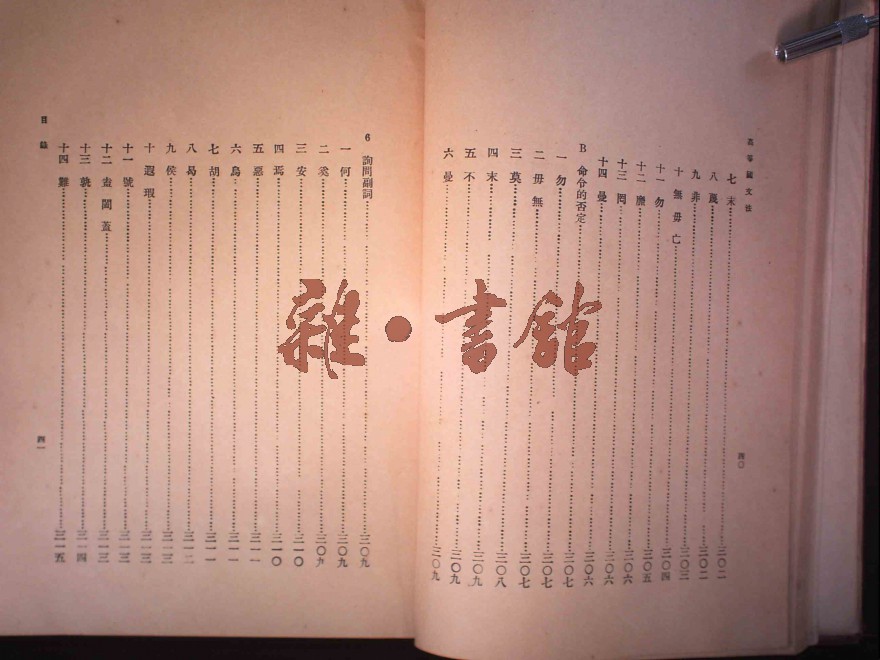 高等國文法
七 末……三〇二
八 蔑……三〇二
九 非……三〇三
十 無毋亡……三〇四
十一 勿……三〇五
十二 靡……三〇六
十三 罔……三〇六
十四 曼……三〇六
B 命令的否定……三〇七
一 勿……三〇七
二 毋無……三〇七
三 莫……三〇八
四 末……三〇九
五 不……三〇九
六 曼……三〇九
四〇
6 詢問副詞……三〇九
一 何……三〇九
二 奚……三〇九
三 安……三一〇
四 焉……三一〇
五 惡……三一一
六 烏……三一一
七 胡……三一一
八 曷……三一二
九 侯……三一三
十 遐瑕……三一三
十一 號……三一三
十二 盍闔蓋……三一三
十三 孰……三一四
十四 難……三一五
目錄
四一
雜·書館